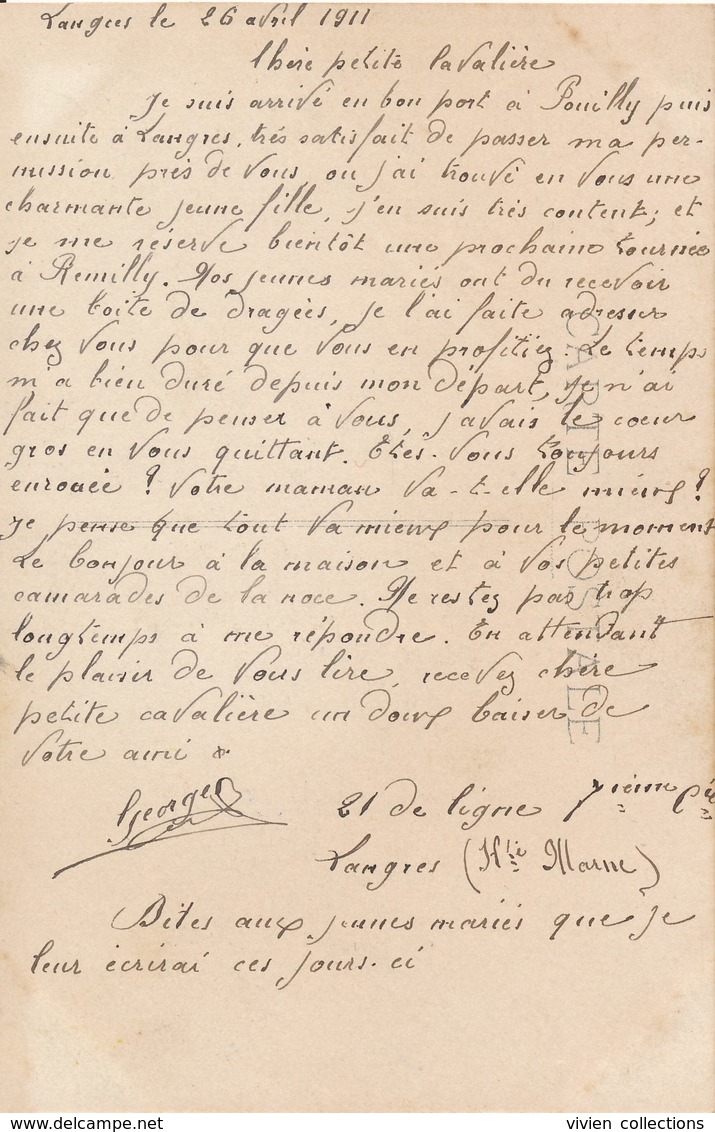 Langres le 26 avril 1911
Chère petite Cavalière
Je suis arrivé en bon port à Pouilly puis
ensuite à Langres, très satisfait de passer ma per-
mission près de vous, ou j'ai trouvé en vous une
charmante jeune fille, j'en suis très content; et
je me réserve bientôt une prochaine tournée
à Remilly. Nos jeunes mariés ont du recevoir
une boite de dragées, je l'ai faite adresser
chez vous pour que vous en profitiez. Le temps
m'a bien duré depuis mon départ, je n'ai
fait que de penser à vous, j'avais le coeur
gros en vous quittant. Etes-vous toujours
enrouée? Votre maman va-t-elle mieux?
Je pense que tout va mieux pour le moment
Le bonjour à la maison et à vos petites
camarades de la noce. Ne restez pas trop
longtemps à me répondre. En attendant
le plaisir de vous lire, recevez chère
petite cavalière un doux baiser de
votre ami
Georges 21 de ligne 7ième Cie
Langres (Hte Marne)
Dites aux jeunes mariés que je
leur écrirai ces jours-ci
CARTE POSTALE
vivien collections